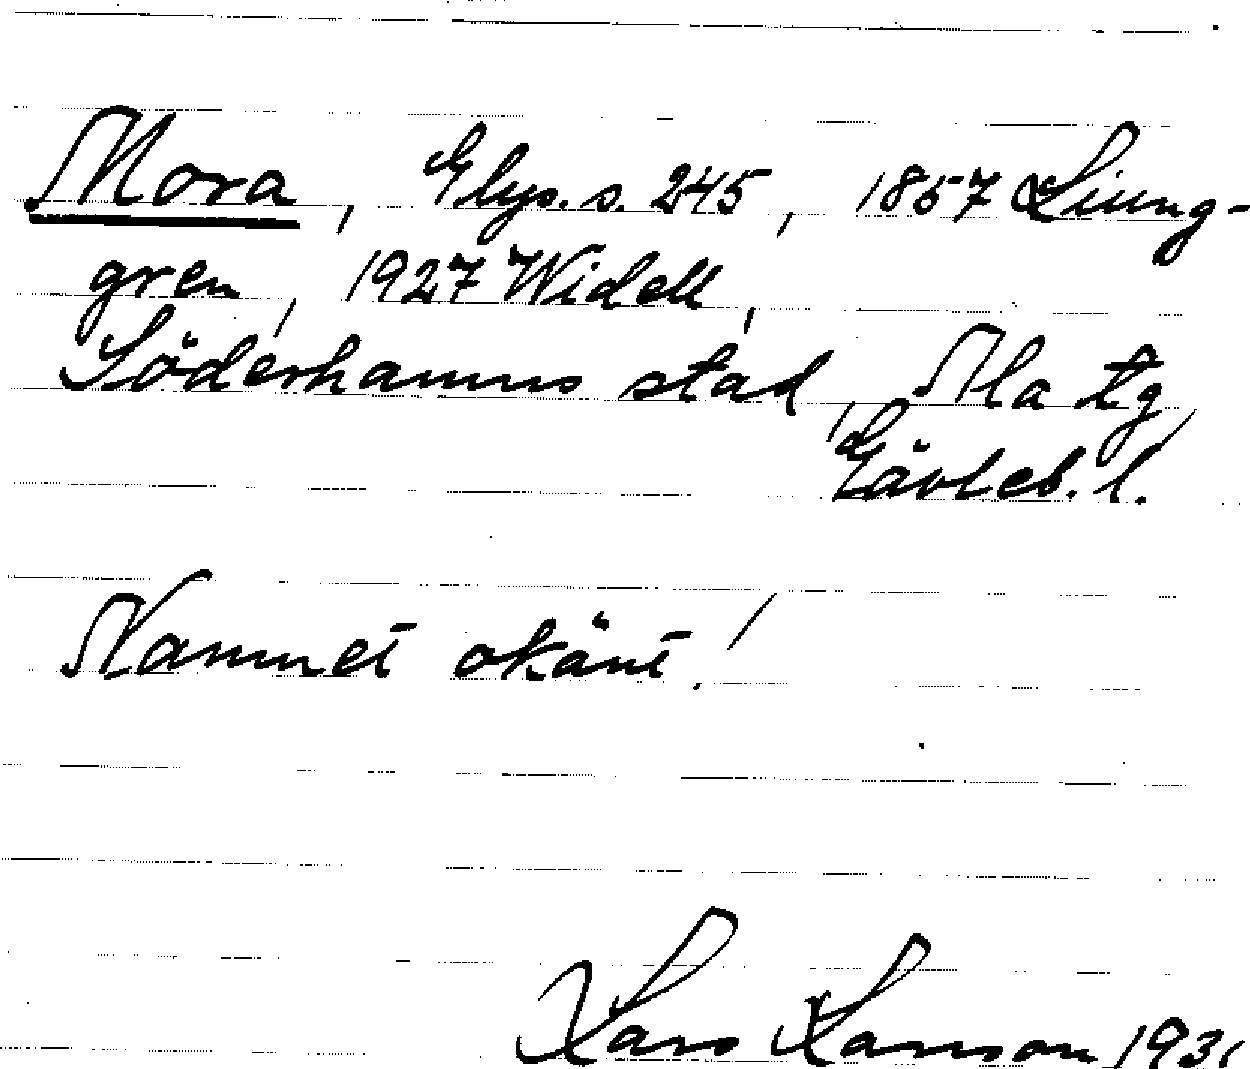 Mora, Glys. s. 245, 1857 Ljung-
gren, 1927 Widell,
Söderhamns stad, Ala tg,
Gävleb. l.
Namnet okänt!
Lars Larsson 1931